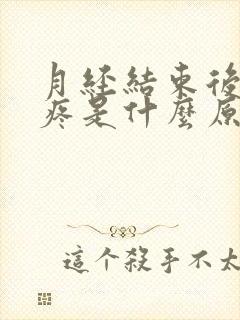 月经結束後
疼是什麼原
這个殺手不太